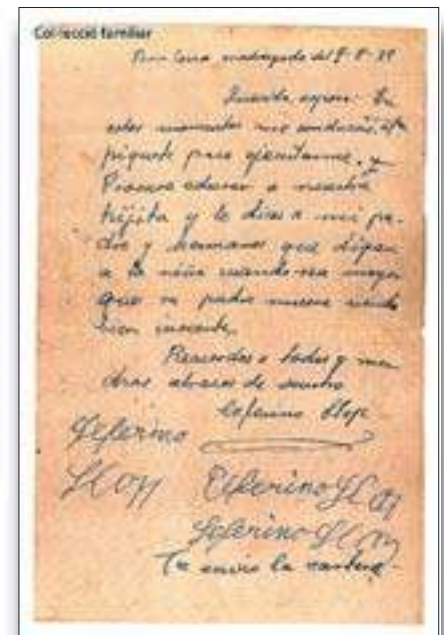 Col·lecció familiar
madrugada del 9-8-39
Querida esposa: En
estos momentos me conducen, el
piquete para ejecutarme, y
Procura educar a nuestra
hijita y le dices a mi pa-
dre y hermanos que digan
a la niña cuando sea mayor
que su padre muere siendo
bien inocente,
Recuerdos a todos y
abrazos de vuestro
Ceferino Llop
Seferino
Llop
Ceferino Llop
Seferino Llop
Te envio la cartera